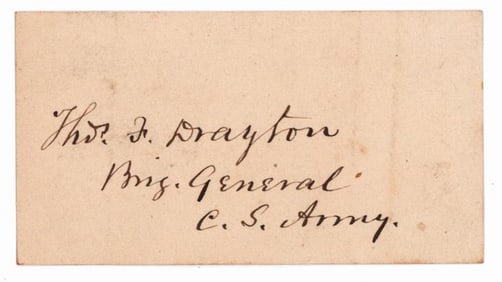 Thos. F. Drayton
Brig. General
C. S. Army.